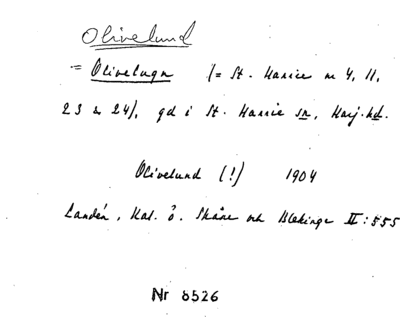 Olivelund
= Olivelugn (= St. Harrie nr 4, 11,
23 o 24), gd i St. Harrie sn, Harj. hd.
Olivelund (!) 1904
Landén, Kal. ö. Skåne och Blekinge II:555
Nr 8526